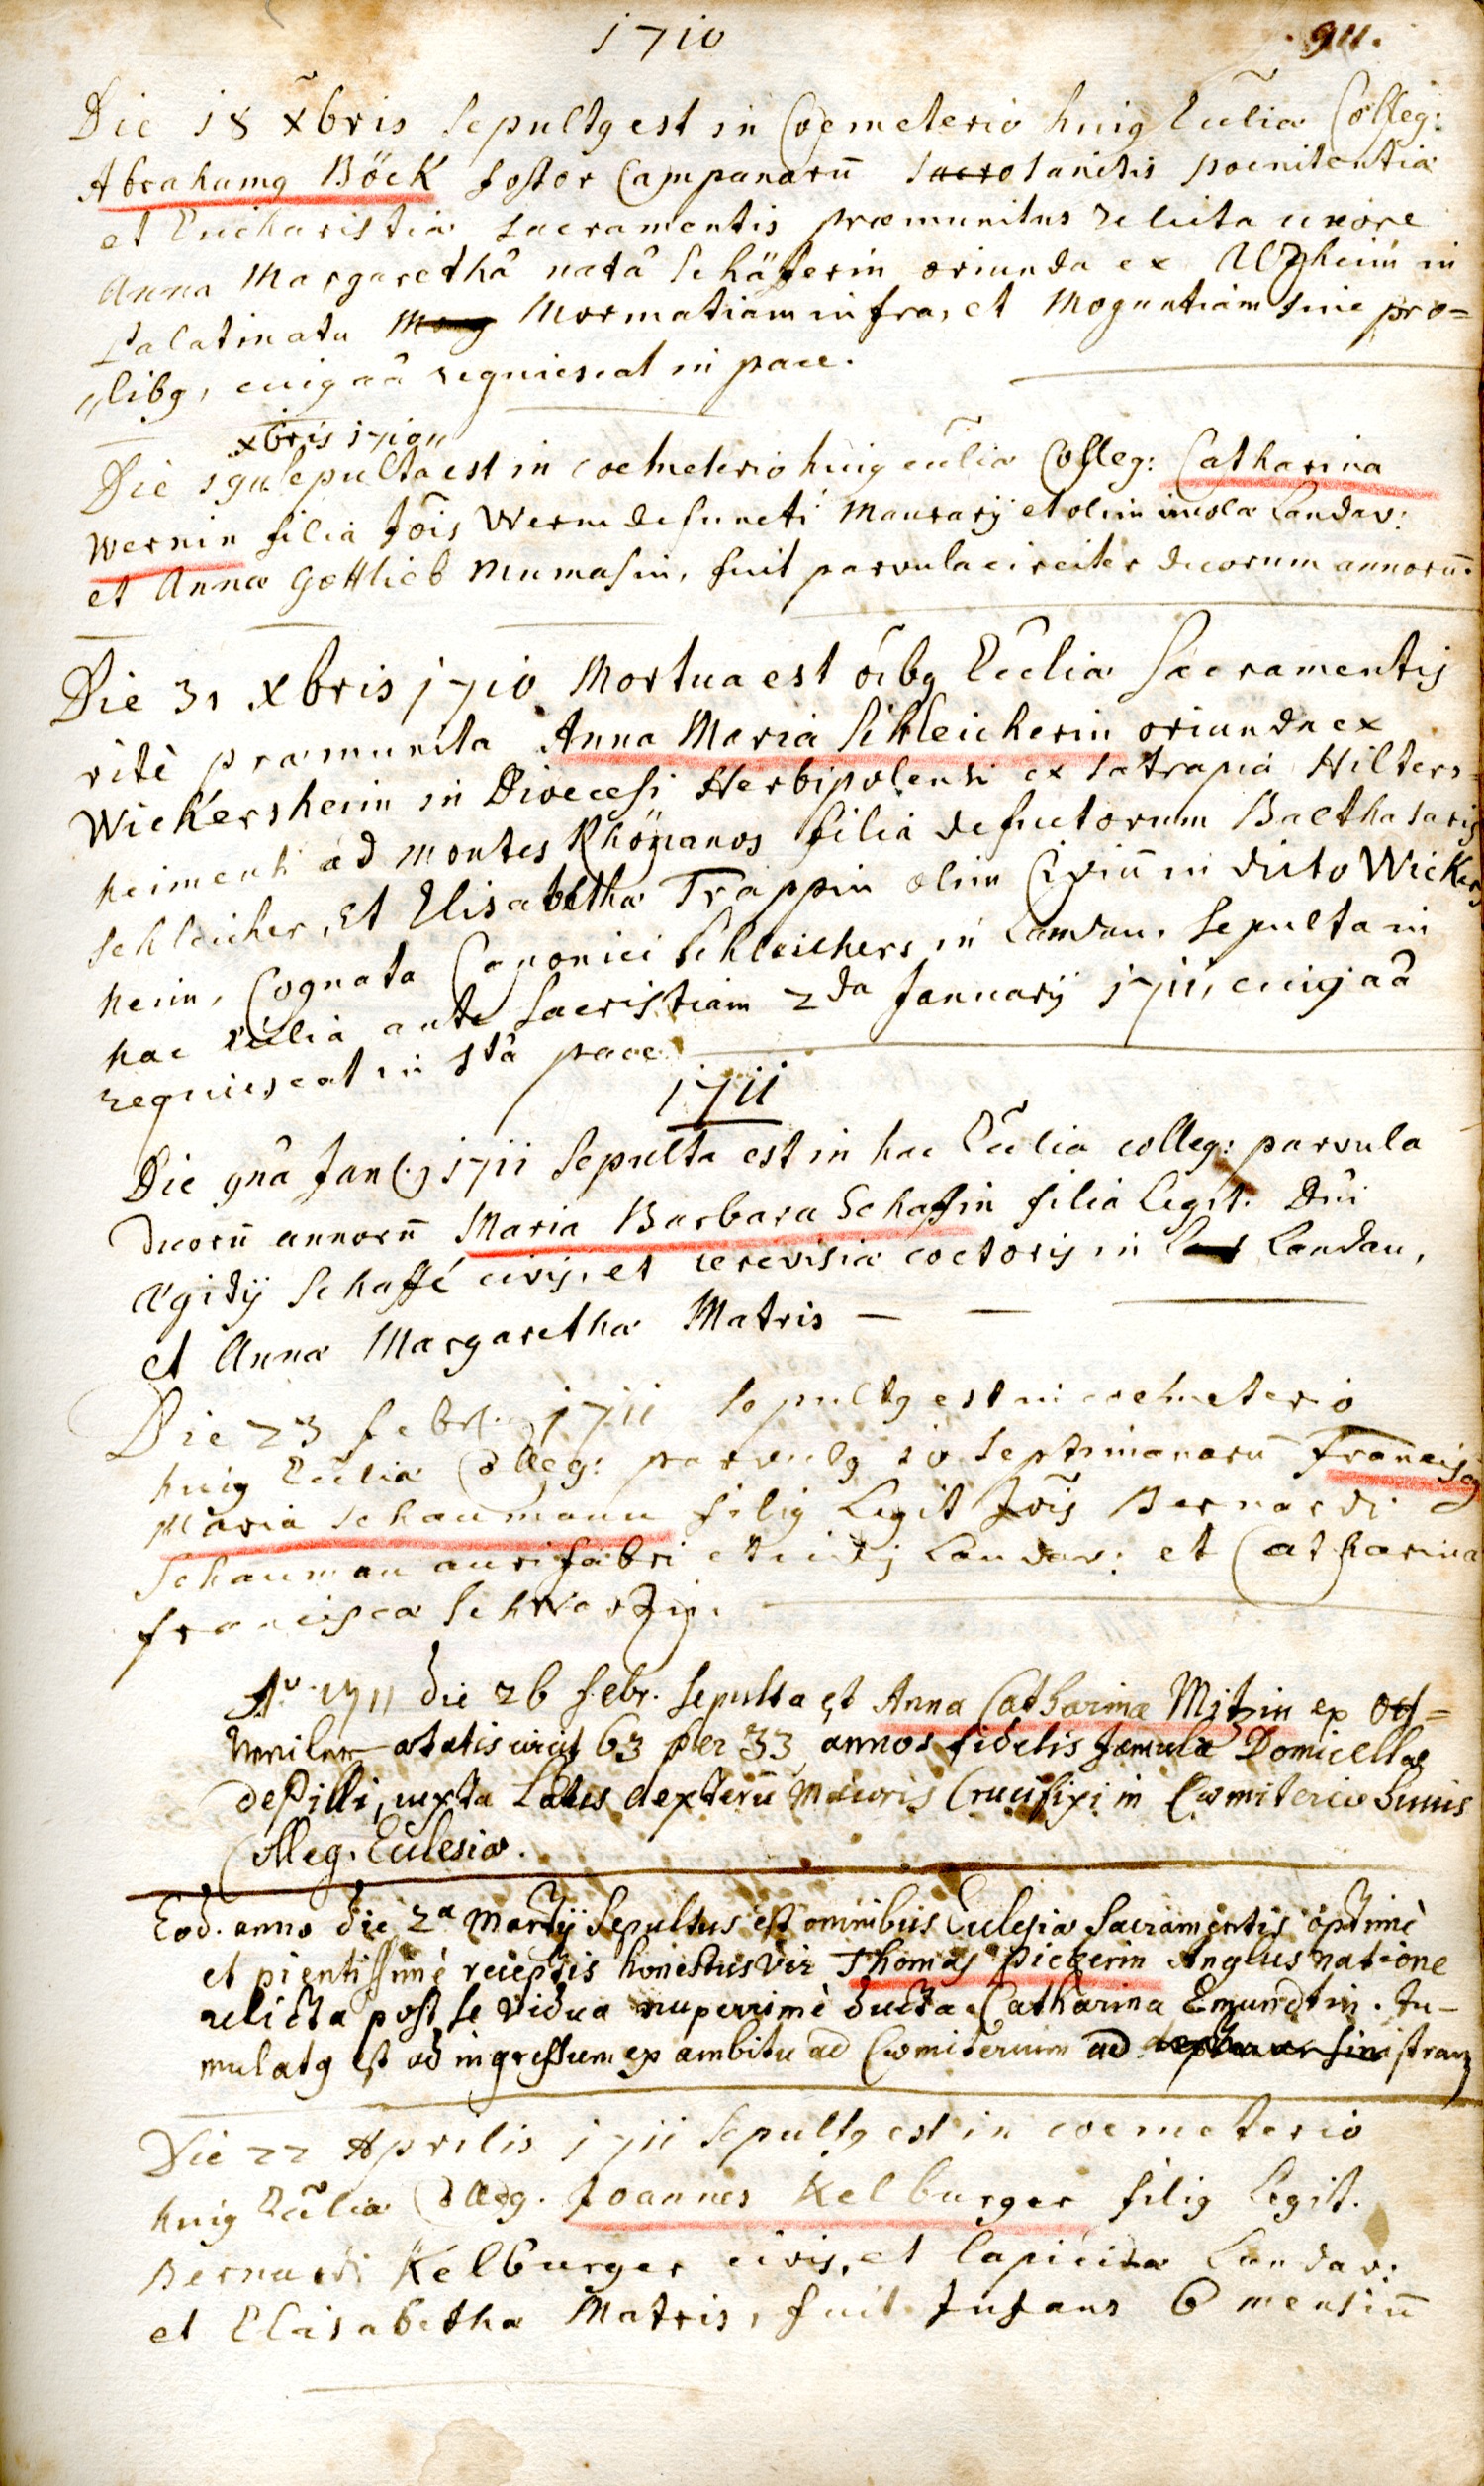 1710
911.
Die 18 xbris sepultq est in Coemeterio huiq Eccliæ Colleg:
Abrahamq Böck fossor Campanarū sacrosanctis poenitentiæ
et Eucharistiæ sacramentis præmunitus relicta uxore
Anna Margarethâ natâ Schäfferin oriunda ex Utzheim in
Palatinatu Mog Wormatiam infra, et Moguntiam sine pro=
„libq, cuiq aâ requiescat in pace.
xbris 1710„
Die 19„ sepulta est in coemeterio huiq eccliæ Colleg: Catharina
Wernin filia Jois Wern defuncti Maurarij et olim incolæ Landav:
et Annæ Gottlieb Mumasin, fuit parvula circiter duorum annorū.
Die 31 xbris 1710 Mortua est oibq Eccliæ Sacramentis
ritè præmunita Anna Maria Schleicherin oriunda ex
Wickersheim in Dioecesi Herbipolensi ex satrapiâ Hilters=
heimensi ad montes Rhönanos filia defuctorum Balthasaris
Schleicher, et Elisabethæ Trappin olim Civiū in dicto Wickers
heim, Cognata Canonici Schleichers in Landau, Sepulta in
hac Eccliâ ante Sacristiam 2da January 1711, cuiq aâ
requiescat in stâ pace.
1711
Die 9nâ Jan(.) 1711 Sepulta est in hac Eccliâ colleg: parvula
duorū annorū Maria Barbara Schaffin filia legit. Dñi
Ægidij Schaffé civis, et cerevisiæ coctoris in Land Landau,
et Annæ Margarethæ Matris — —
Die 23 febr. 1711 Sepultq est in coemeterio
huiq Eccliæ Colleg: parvulq 10 Septimanarū Franciscq
Maria Schaumann filiq Legit Jois Bernardi
Schauman aurifabri et civis Landav: et Catharina
Francisca Schwartzin.
Ao. 1711 die 26 febr. Sepulta est Anna Catharina Mitzin ex Ost=
weiler ætatis circit 63 per 33 annos fidelis famula Domicellæ
de Pilli, iuxta Latus dexterū Maioris Crucifixi in Coemiterio huius
Colleg. Ecclesiæ.
Eod. anno die 2a Martij Sepultus est omnibus Ecclesiæ Sacramentis optimè
et pientissimè receptis honestus Vir Thomas Pickerin Anglus natione
relicta post se vidua nuperrimè ducta Catharina Emundtin. Tu-
mulatq est ad ingressum ex ambitu ad Coemiterium ad dextram sinistram
Die 22 Aprilis 1711 sepultq est in coemeterio
huiq Eccliæ Colleg. Joannes Kelburger filiq legit.
Bernardi Kelburger civis, et lapicidæ Landav:
et Elisabethæ Matris, fuit Infans 6 mensiū